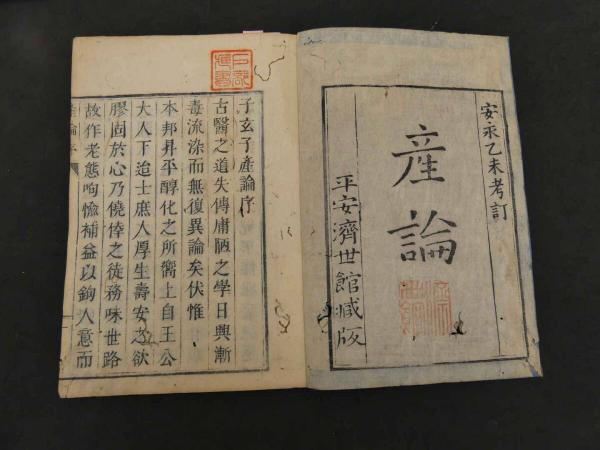 安永乙未考訂
產論
平安濟世館藏版
子玄子產論序
古醫之道失傳庸陋之學日興漸
毒流染而無復異論矣伏惟
本邦昇平醇化之所嚮上自王公
大人下迨士庶人厚生壽安之欲
膠固於心乃僥倖之徒務味世路
故作老態呴愉補益以鉤人意而